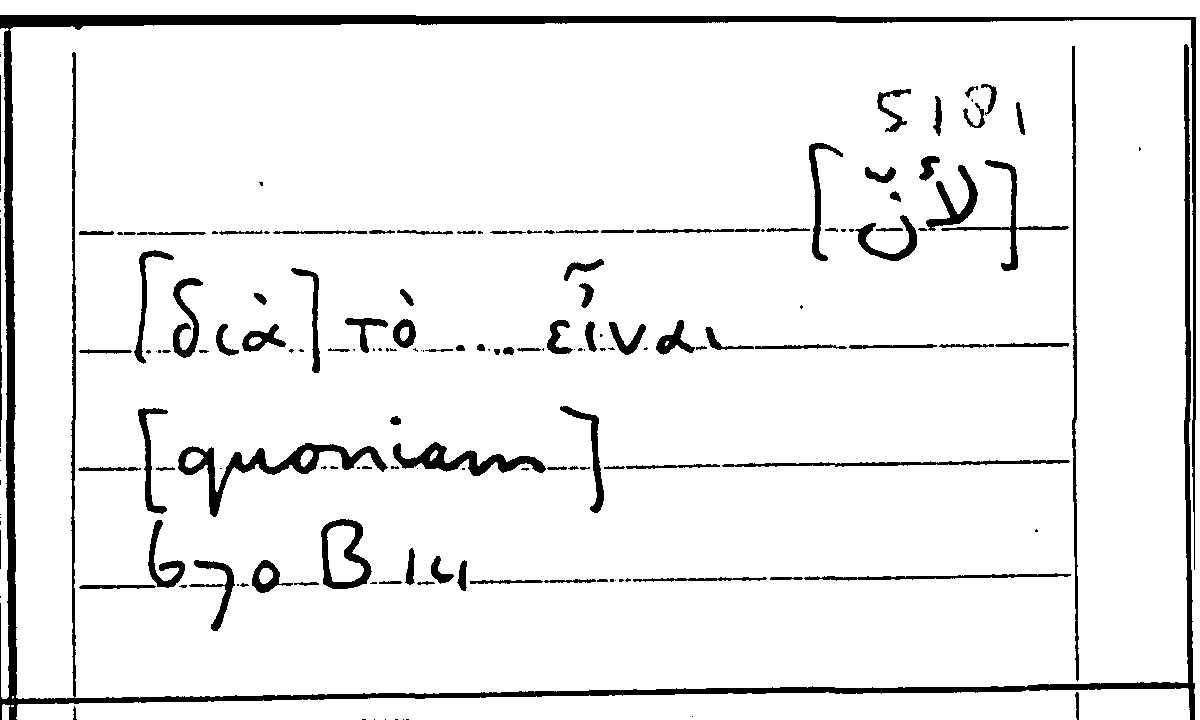 5181
[لأنّ]
[διὰ] τὸ .... εἶναι
[quoniam]
670 B 14